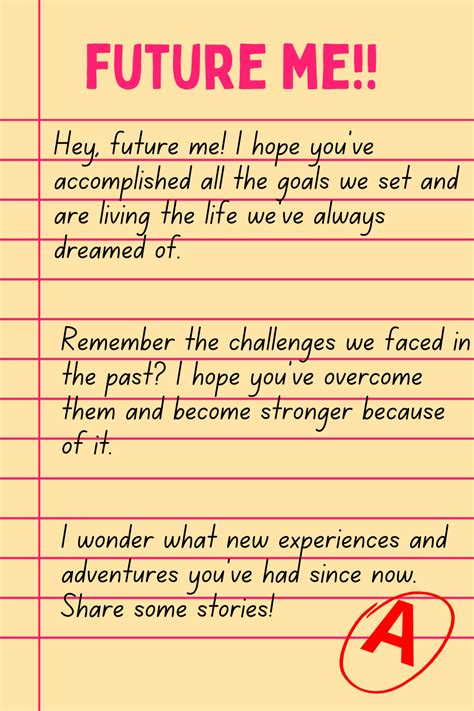 FUTURE ME!!
Hey, future me! I hope you've
accomplished all the goals we set and
are living the life we've always
dreamed of.
Remember the challenges we faced in
the past? I hope you've overcome
them and become stronger because
of it.
I wonder what new experiences and
adventures you've had since now.
Share some stories!
A